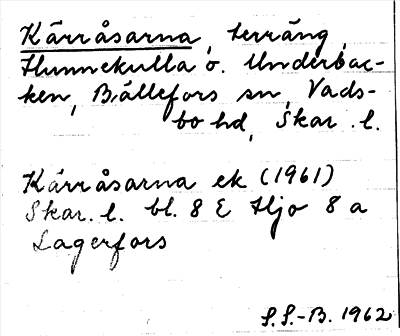 Kärråsarna, terräng,
Hunnekulla o. Underbac-
ken, Bällefors sn, Vads-
bo hd, Skar. l.
Kärråsarna ek (1961)
Skar. l. bl. 8 E Hjo 8 a
Lagerfors
S.S.-B. 1962